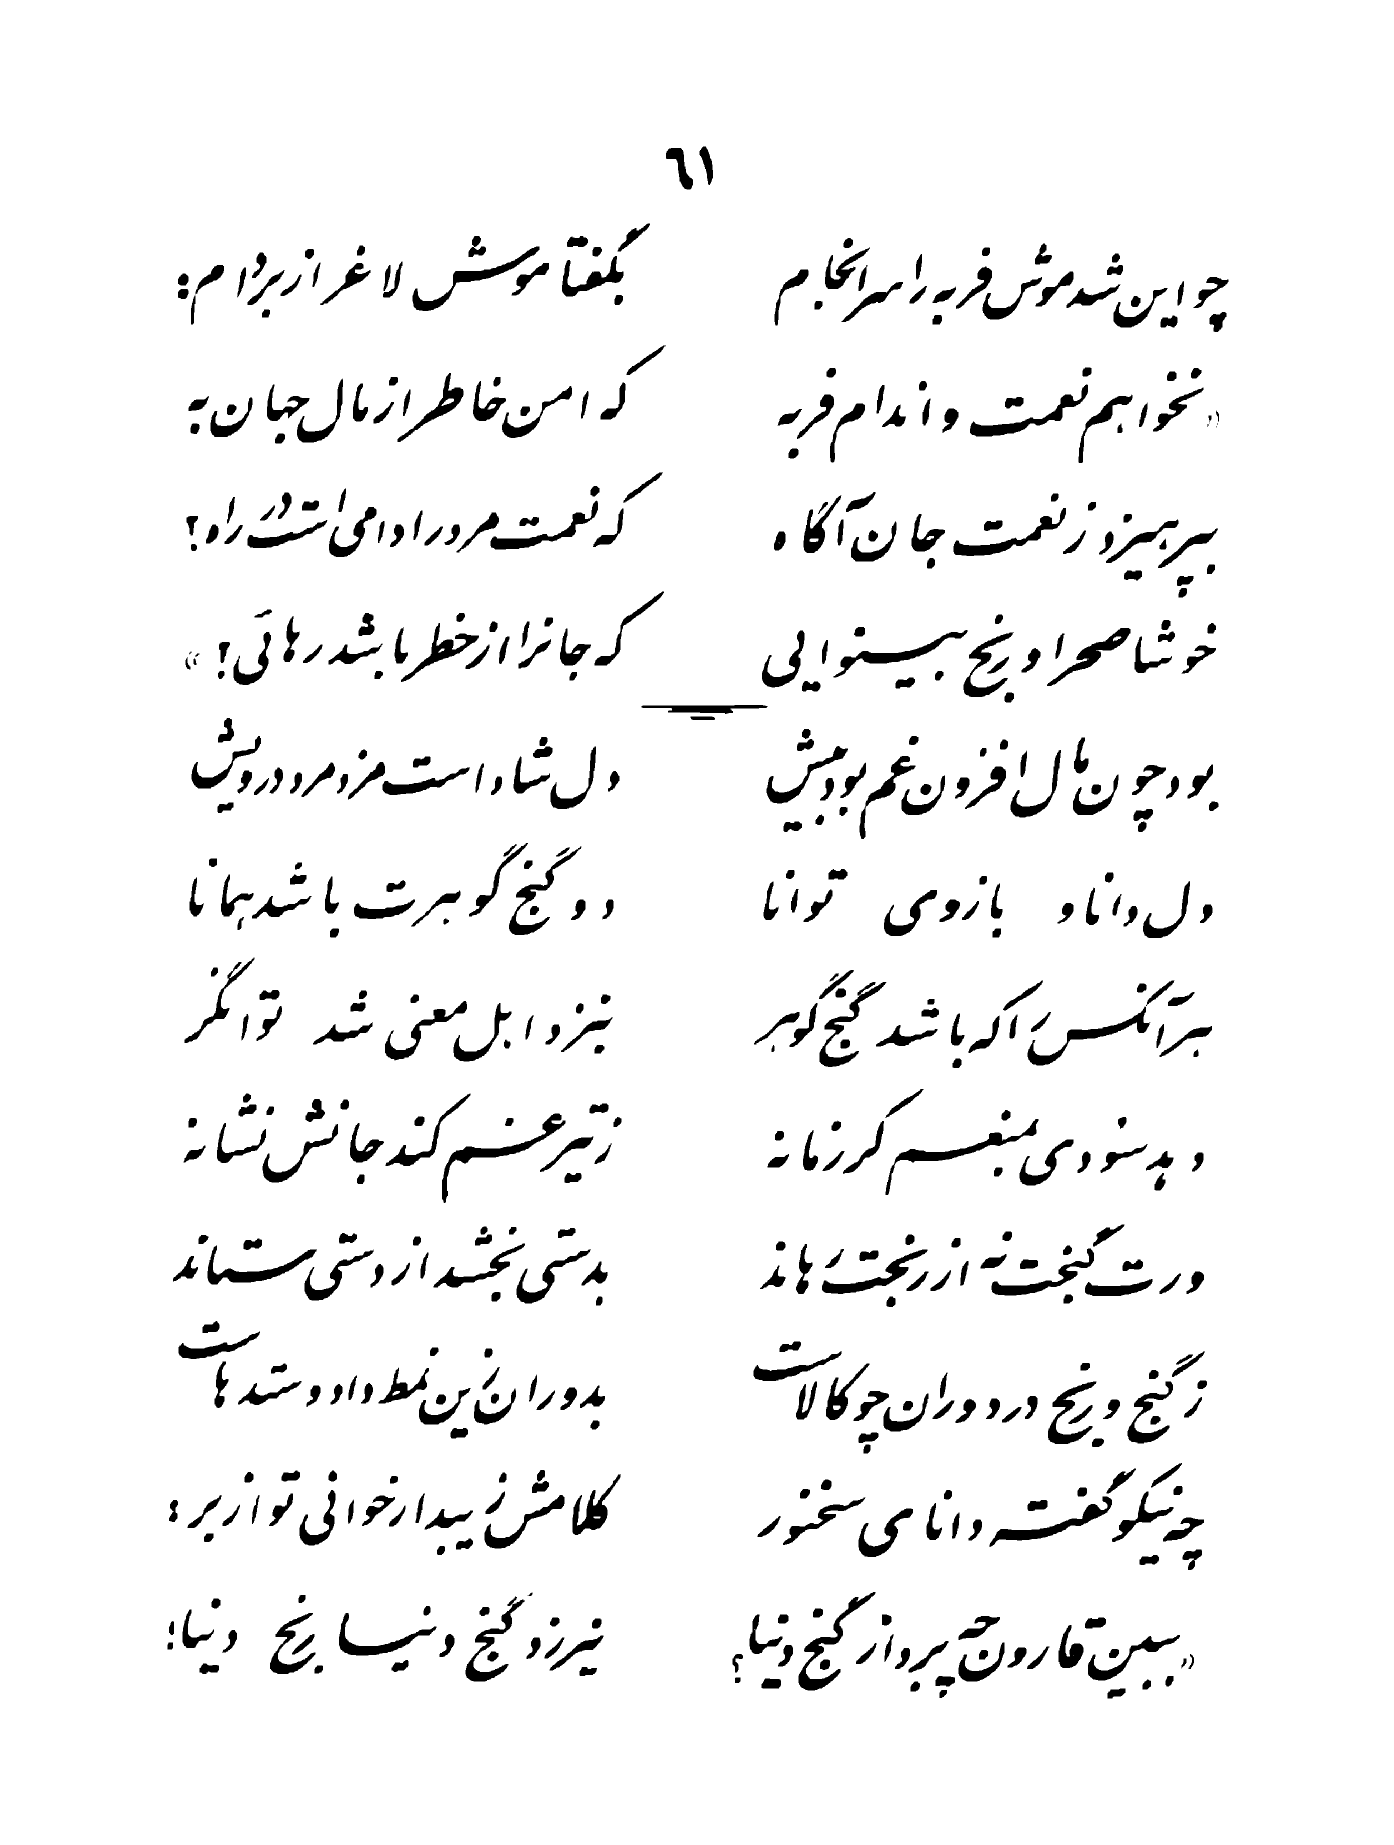 ٦١
چو این شد موش فربه را سرانجام    بگفتا موش لاغر از بر دام:
«نخواهم نعمت و اندام فربه    که امن خاطر از مال جهان به
بپرهیزد ز نعمت جان آگاه    که نعمت مرد را دامی است در راه؟
خوشا صحرا و رنج بینوایی    که جانرا از خطر باشد رهائی؟»
بود چون مال افزون غم بود بیش    دل شاد است مزد مرد درویش
دل دانا و بازوی توانا    دو گنج گوهرت باشد همانا
هر آنکس را که باشد گنج گوهر    بنزد اهل معنی شد توانگر
دهد سودی بمنعم گر زمانه    ز تیر غم کند جانش نشانه
ورت گنجت نه از رنجت رهاند    بدستی بخشد از دستی ستاند
ز گنج و رنج در دوران چو کالاست    بدوران زین نمط داد و ستدهاست
چه نیکو گفته دانای سخنور    کلامش زیبد ار خوانی تو از بر:
«ببین قارون چه برد از گنج دنیا؟    نیرزد گنج دنیا رنج دنیا!